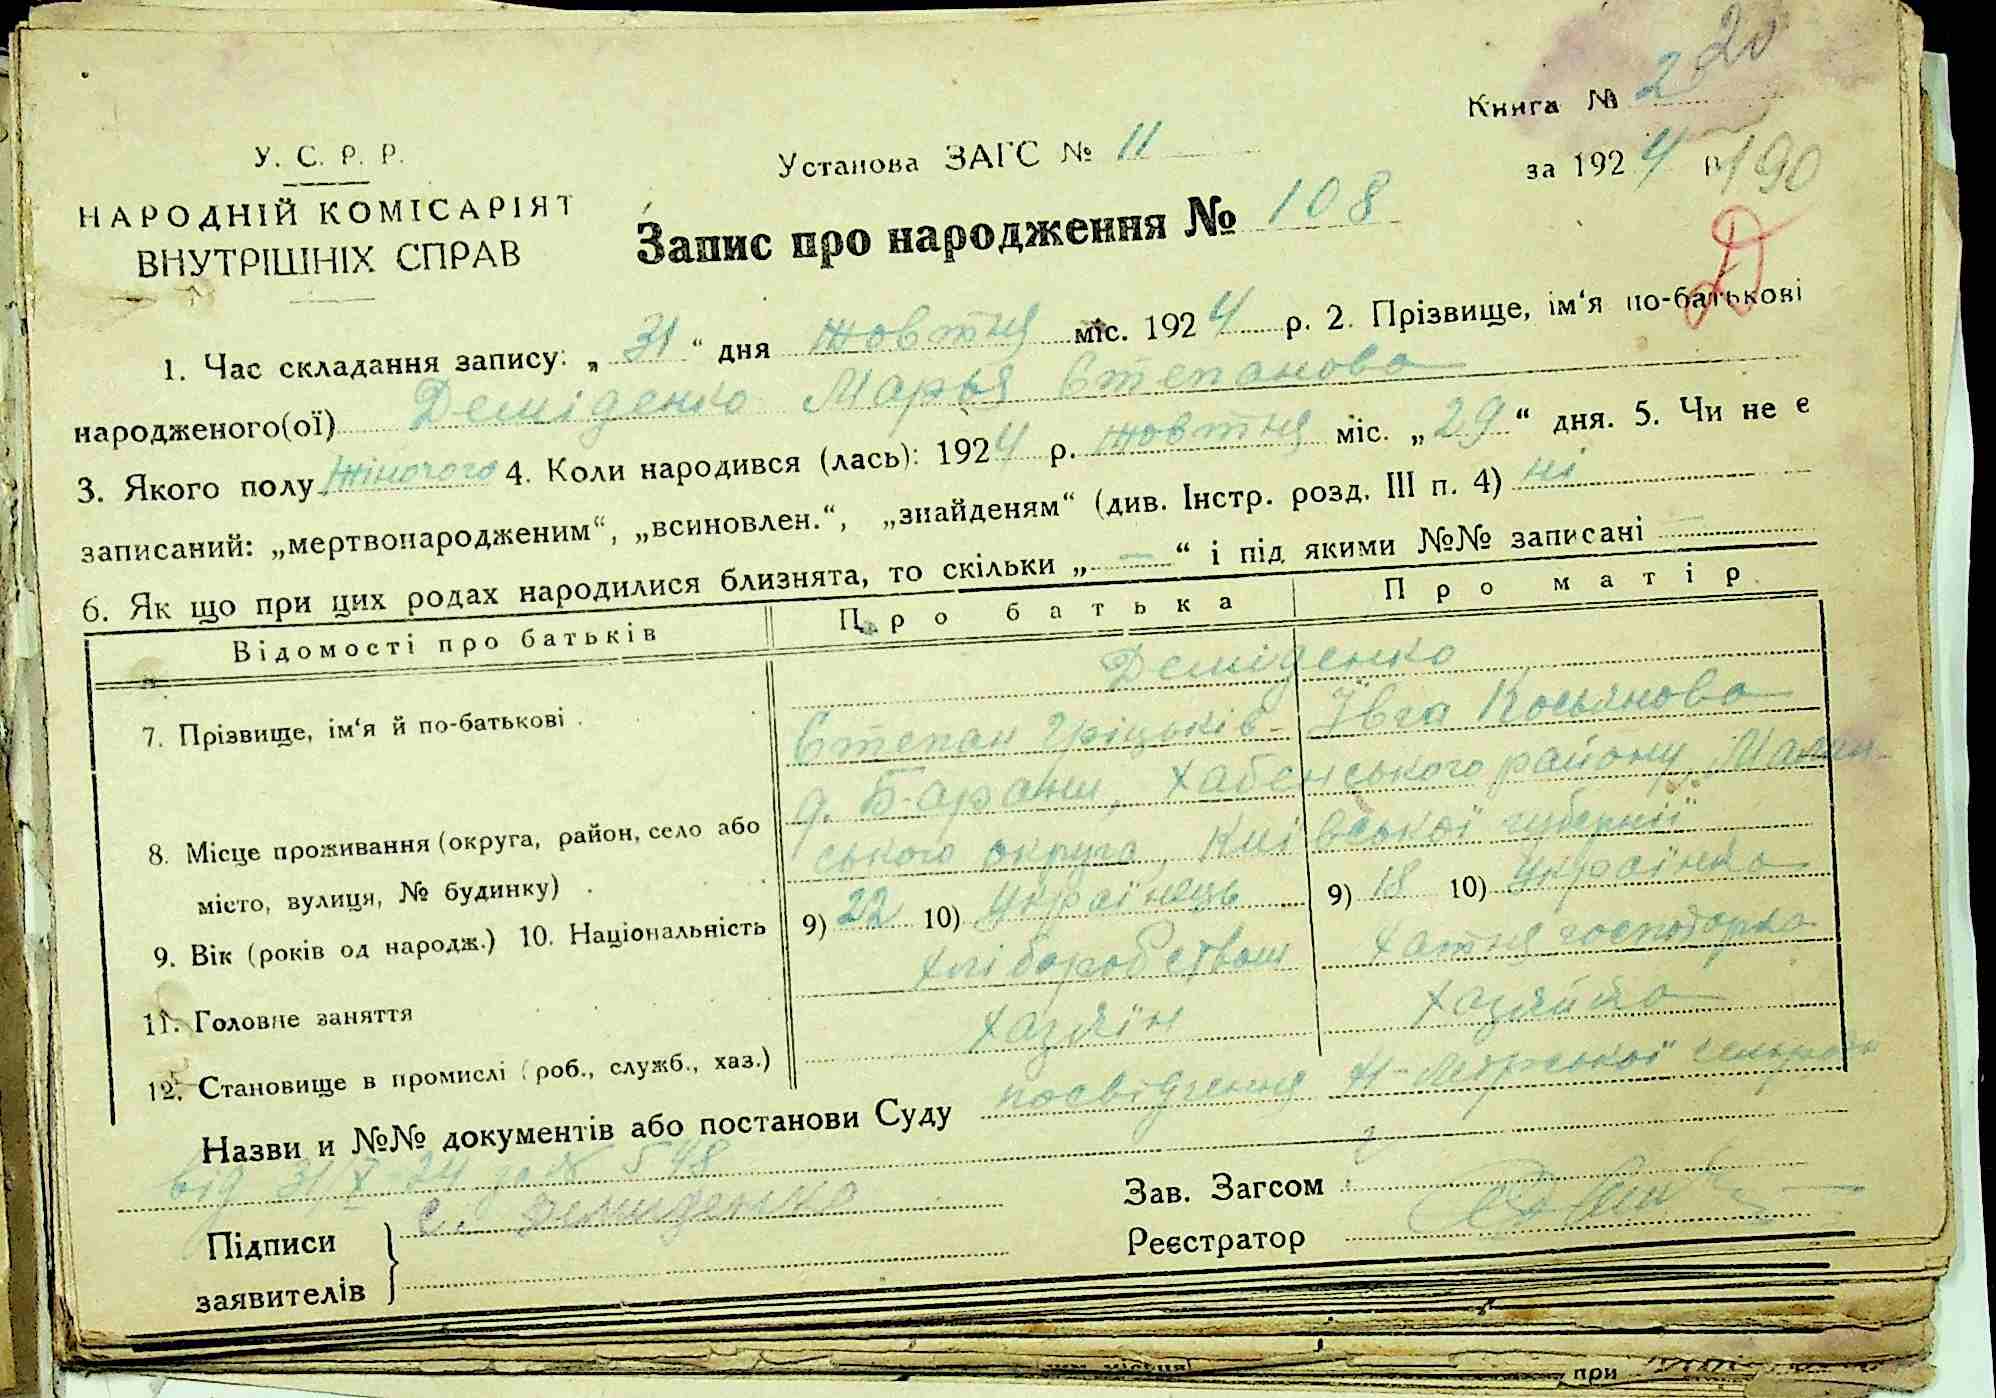 20
Книга № 2
У. С. Р. Р.
Установа ЗАГС № 11
за 1924 р.
190
НАРОДНІЙ КОМІСАРІЯТ
ВНУТРІШНІХ СПРАВ
Запис про народження № 108
Д
1. Час складання запису: „ 31 “ дня жовтня міс. 1924 р. 2. Прізвище, ім‘я по-батькові
народженого(ої) Деміденко Марья Степанова
3. Якого полу жіночого 4. Коли народився (лась): 1924 р. жовтня міс. „ 29 “ дня. 5. Чи не є
записаний: „мертвонародженим“, „всиновлен.“, „знайденям“ (див. Інстр. розд. III п. 4) ні
6. Як що при цих родах народилися близнята, то скільки „ — “ і під якими №№ записані —
Відомості про батьків Про батька Про матір
Деміденко
7. Прізвище, ім‘я й по-батькові Степан Гріцьків Ївга Косьянова
д. Барани, Хабенського району Малин-
8. Місце проживання (округа, район, село або
ського округа, Київської губернії
місто, вулиця, № будинку)
9. Вік (років од народж.) 10. Національність 9) 22 10) Українець 9) 18 10) Українка
11. Головне заняття хліборобством хатня господарка
12. Становище в промислі (роб., служб., хаз.) хазяїн хазяйка
Назви и №№ документів або постанови Суду посвідчення сельради
від 31/X-24 за № 548
Підписи
заявителів
С. Демиденко
Зав. Загсом
Реєстратор
при